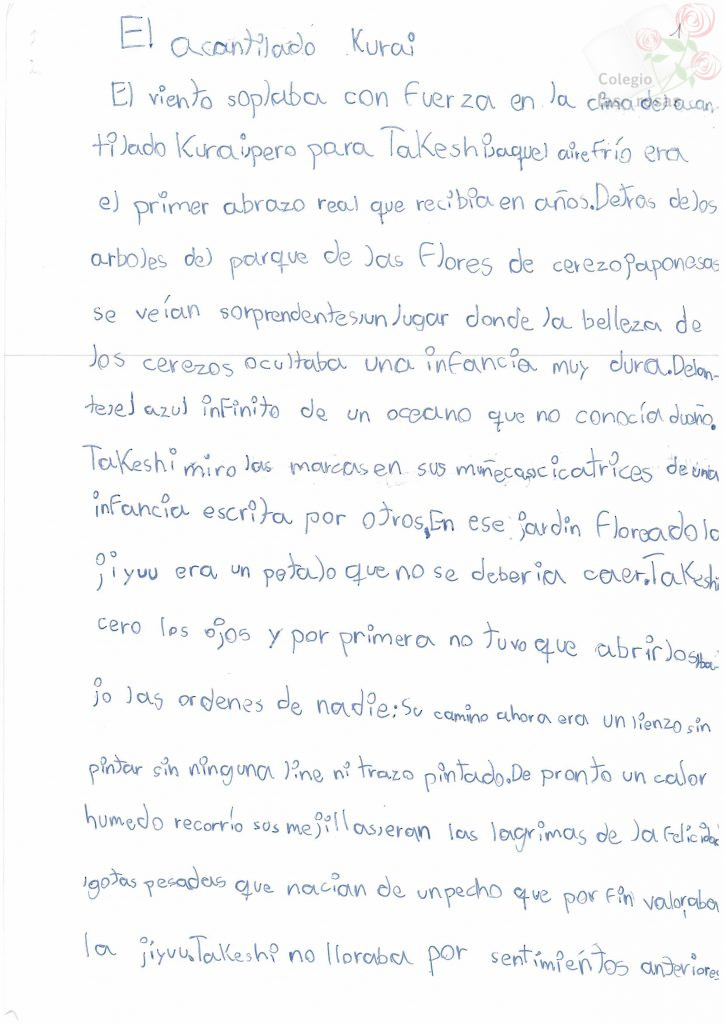 1
El acantilado Kurai
Colegio
El viento soplaba con fuerza en la cima del acan-
tilado Kurai, pero para Takeshi, aquel aire frío era
el primer abrazo real que recibia en años. Detras de los
arboles del parque de las flores de cerezo japonesas
se veían sorprendentes, un lugar donde la belleza de
los cerezos ocultaba una infancia muy dura. Delan-
te, el azul infinito de un oceano que no conocía dueño.
Takeshi miro las marcas en sus muñecas, cicatrices de una
infancia escrita por otros, En ese jardin floreado la
jiyuu era un petalo que no se deberia caer. Takeshi
cero los ojos y por primera no tuvo que abrirlos ba-
jo las ordenes de nadie; Su camino ahora era un lienzo sin
pintar sin ninguna line ni trazo pintado. De pronto un calor
humedo recorrío sus mejillas, eran las lagrimas de la felicidad
, gotas pesadas que nacian de un pecho que por fin valoraba
la jiyuu. Takeshi no lloraba por sentimientos anteriores